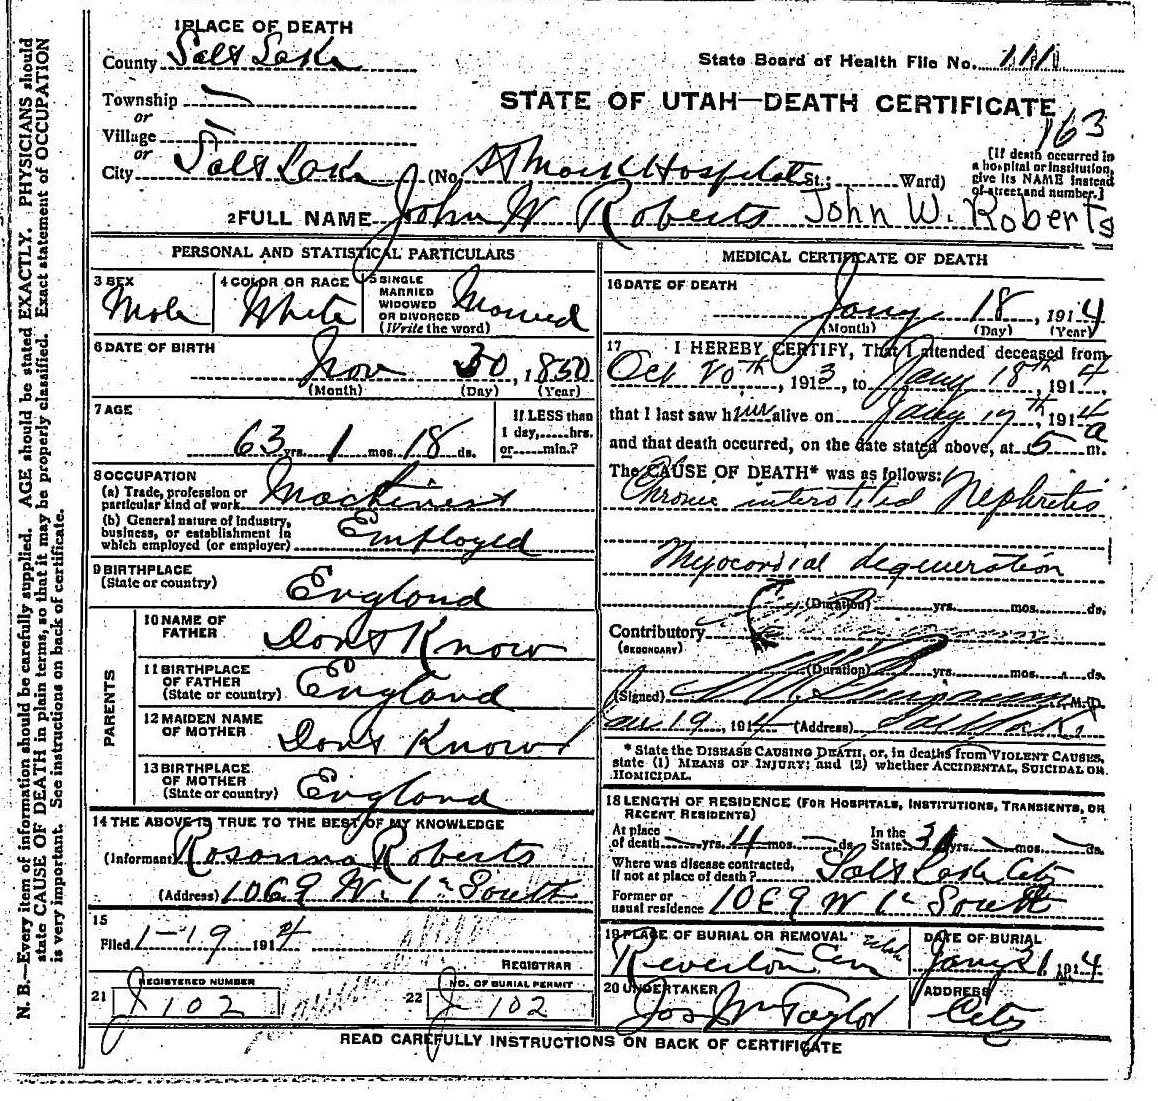 N. B.—Every item of information should be carefully supplied. AGE should be stated EXACTLY. PHYSICIANS should
state CAUSE OF DEATH in plain terms, so that it may be properly classified. Exact statement of OCCUPATION
is very important. See instructions on back of certificate.
1 PLACE OF DEATH
County Salt Lake
State Board of Health File No.
Township
or
STATE OF UTAH—DEATH CERTIFICATE
163
Village
or
City Salt Lake (No. St Marks Hospital St.; Ward)
[If death occurred in
a hospital or institution,
give its NAME instead
of street and number.]
2 FULL NAME John W Roberts John W. Roberts
PERSONAL AND STATISTICAL PARTICULARS
3 SEX
Male
4 COLOR OR RACE
White
5 SINGLE
MARRIED
WIDOWED
OR DIVORCED
(Write the word)
Married
6 DATE OF BIRTH
Nov 30, 1850
(Month) (Day) (Year)
7 AGE
63 yrs. 1 mos. 18 ds.
If LESS than
1 day, hrs.
or min.?
8 OCCUPATION
(a) Trade, profession or
particular kind of work Machinest
(b) General nature of industry,
business, or establishment in
which employed (or employer) Employed
9 BIRTHPLACE
(State or country) England
PARENTS
10 NAME OF
FATHER Dont Know
11 BIRTHPLACE
OF FATHER
(State or country) England
12 MAIDEN NAME
OF MOTHER Dont Know
13 BIRTHPLACE
OF MOTHER
(State or country) England
14 THE ABOVE IS TRUE TO THE BEST OF MY KNOWLEDGE
(Informant Rosanna Roberts
(Address) 1069 W. 1st South
15
Filed 1-19 1914
REGISTRAR
21 REGISTERED NUMBER
J 102
22 NO. OF BURIAL PERMIT
J 102
MEDICAL CERTIFICATE OF DEATH
16 DATE OF DEATH
Jany 18, 1914
(Month) (Day) (Year)
17 I HEREBY CERTIFY, That I attended deceased from
Oct 20th, 1913, to Jany 18th, 1914
that I last saw him alive on Jany 17th, 1914
and that death occurred, on the date stated above, at 5 a m.
The CAUSE OF DEATH* was as follows:
Chronic interstitial Nephritis
Myocardial degeneration
(Duration) yrs. mos. ds.
Contributory
(SECONDARY)
(Duration) yrs. mos. ds.
(Signed) M.D.
Jan 19, 1914 (Address) Salt Lake
* State the DISEASE CAUSING DEATH, or, in deaths from VIOLENT CAUSES,
state (1) MEANS OF INJURY; and (2) whether ACCIDENTAL, SUICIDAL OR
HOMICIDAL.
18 LENGTH OF RESIDENCE (FOR HOSPITALS, INSTITUTIONS, TRANSIENTS, OR
RECENT RESIDENTS)
At place
of death yrs. mos. ds.
In the
State yrs. mos. ds.
Where was disease contracted,
if not at place of death? Salt Lake City
Former or
usual residence 1069 W 1st South
19 PLACE OF BURIAL OR REMOVAL Utah
Riverton Cem
DATE OF BURIAL
Jany 21, 1914
20 UNDERTAKER
Jos Wm Taylor
ADDRESS
City
READ CAREFULLY INSTRUCTIONS ON BACK OF CERTIFICATE